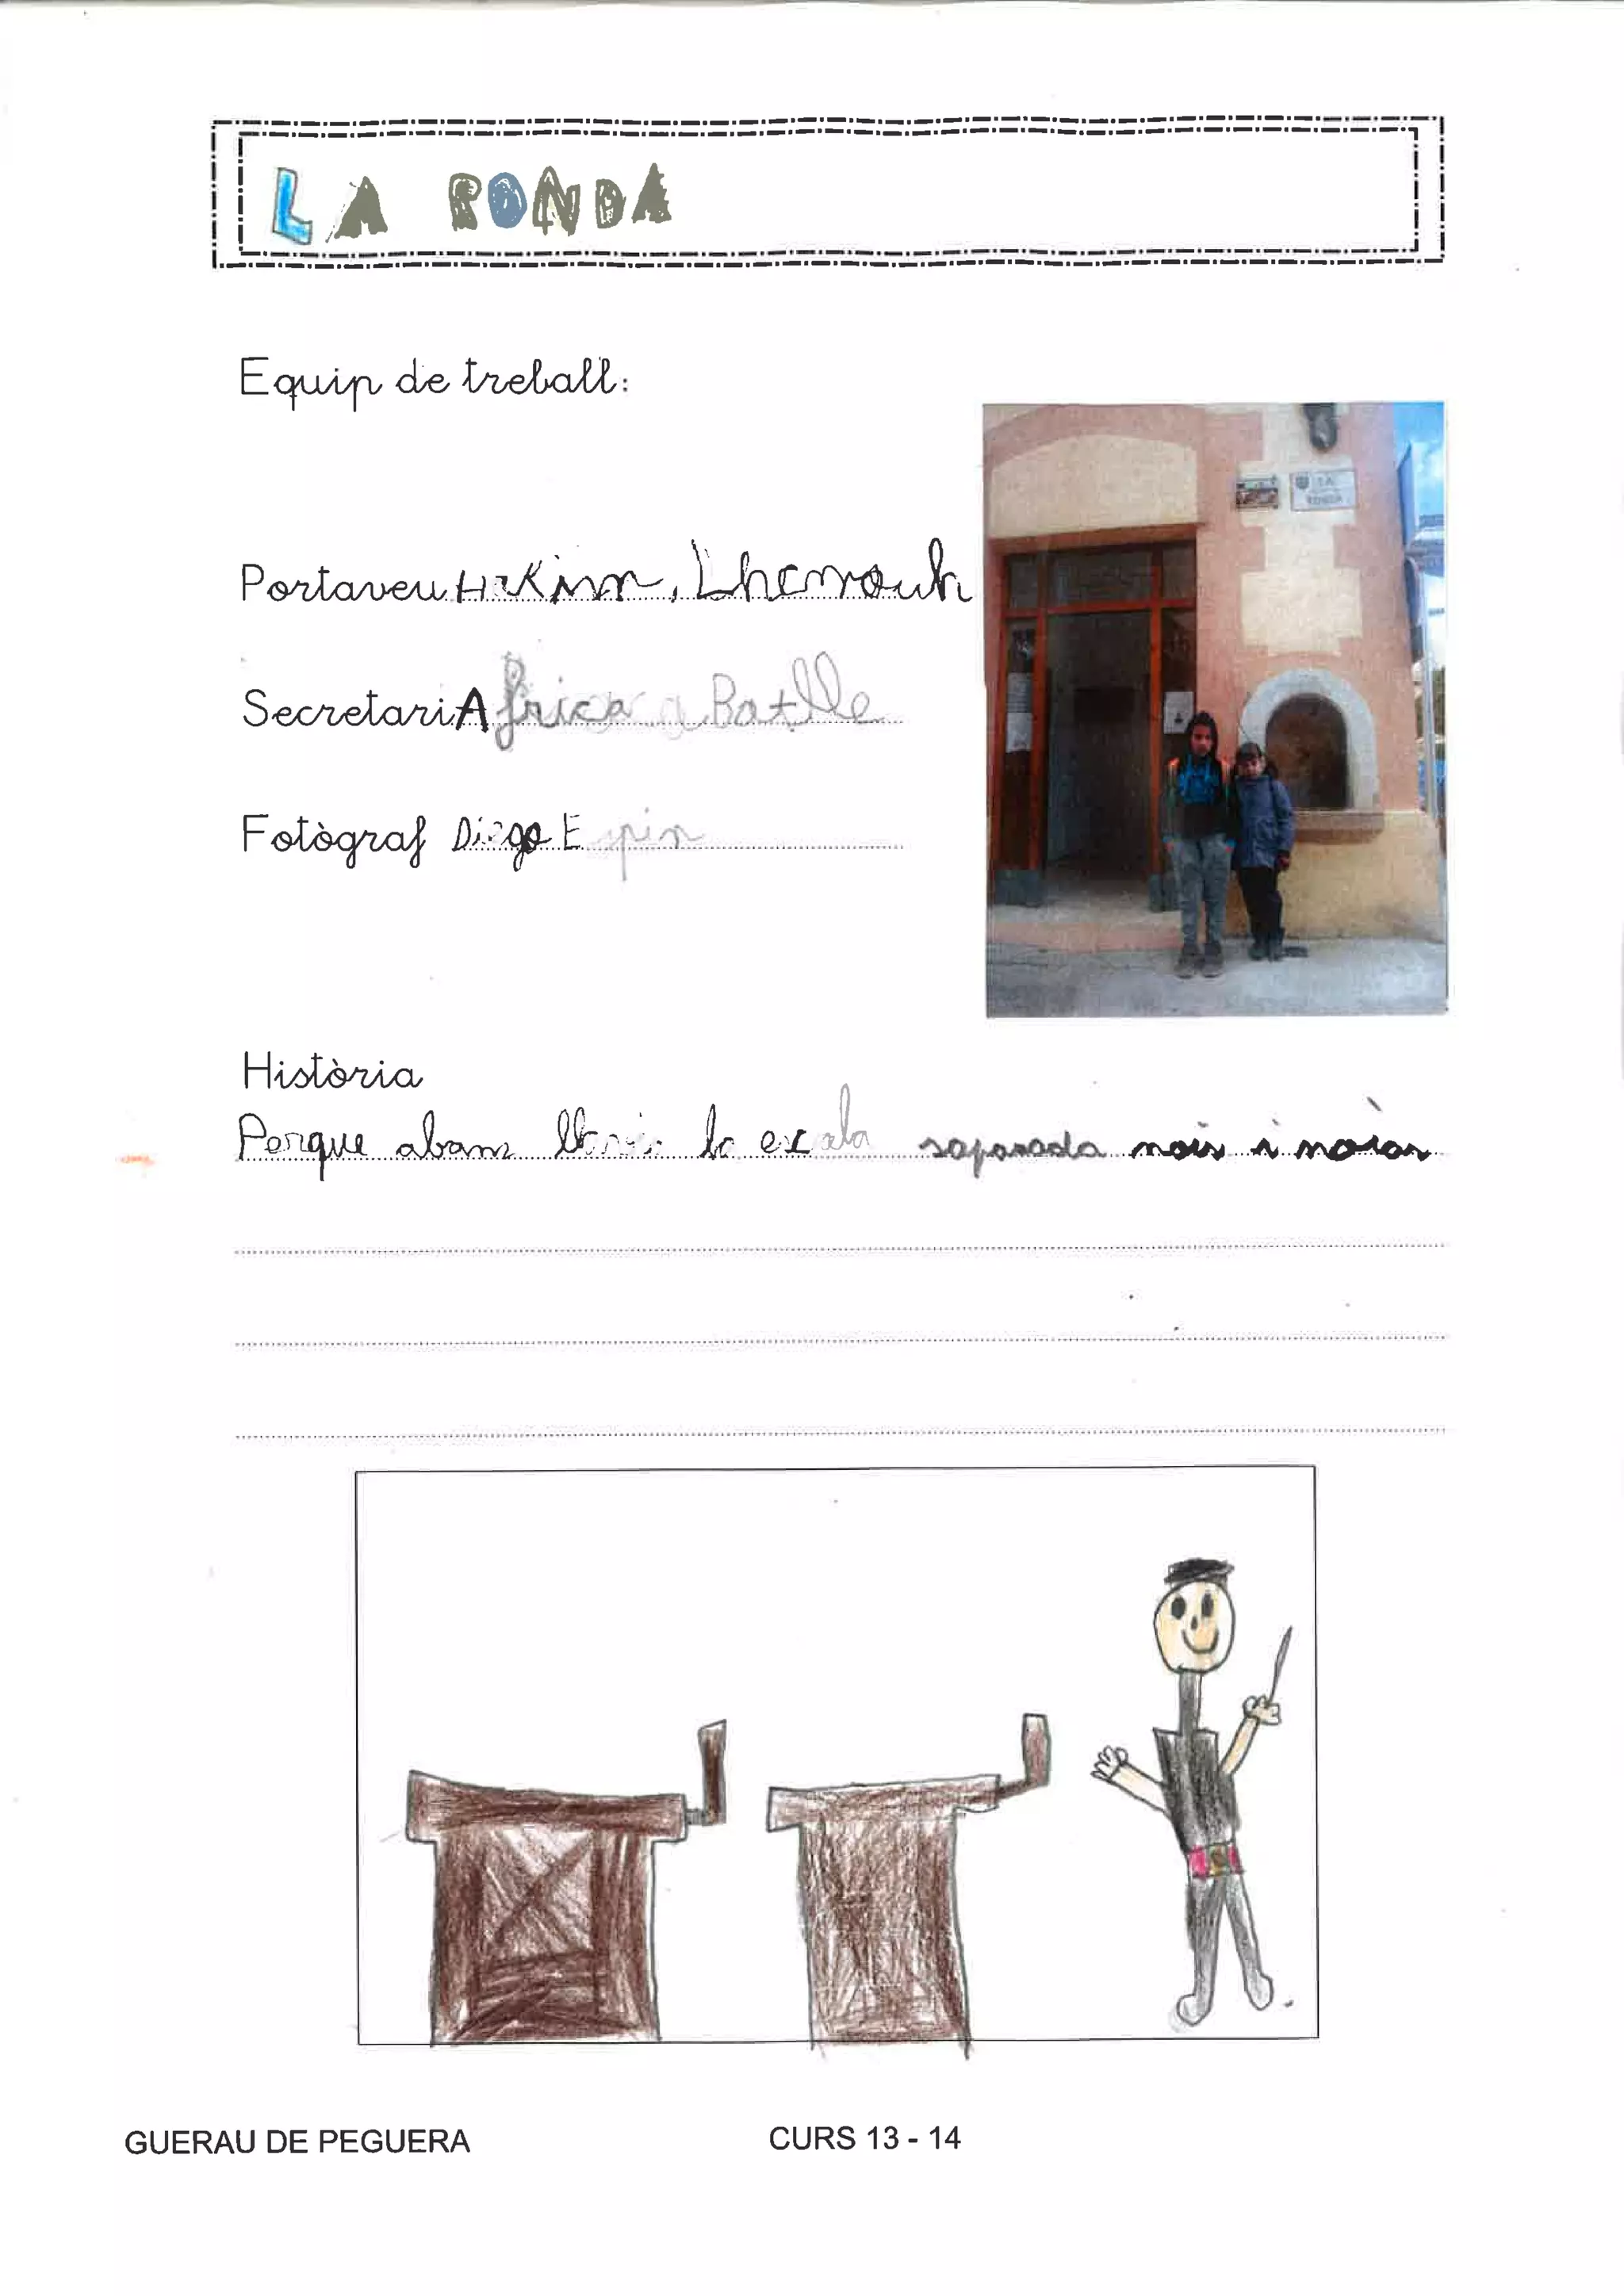 LA RONDA
Equip de treball:
LA
RONDA
Portaveu Hakim, Lhamouh
Secretari Africa Batlle
Fotògraf Diego E pin
Història
Perque abam la escala saparada nois i noias
GUERAU DE PEGUERA
CURS 13 - 14